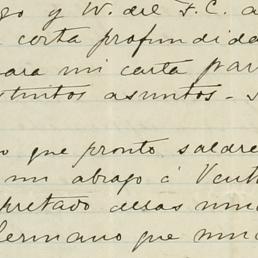 go y W. del F. C. a
corta profundida
para mi carta par
stintos asuntos - s
o que pronto saldre
un abrazo á Vent
pretado desas mu
hermano que mu